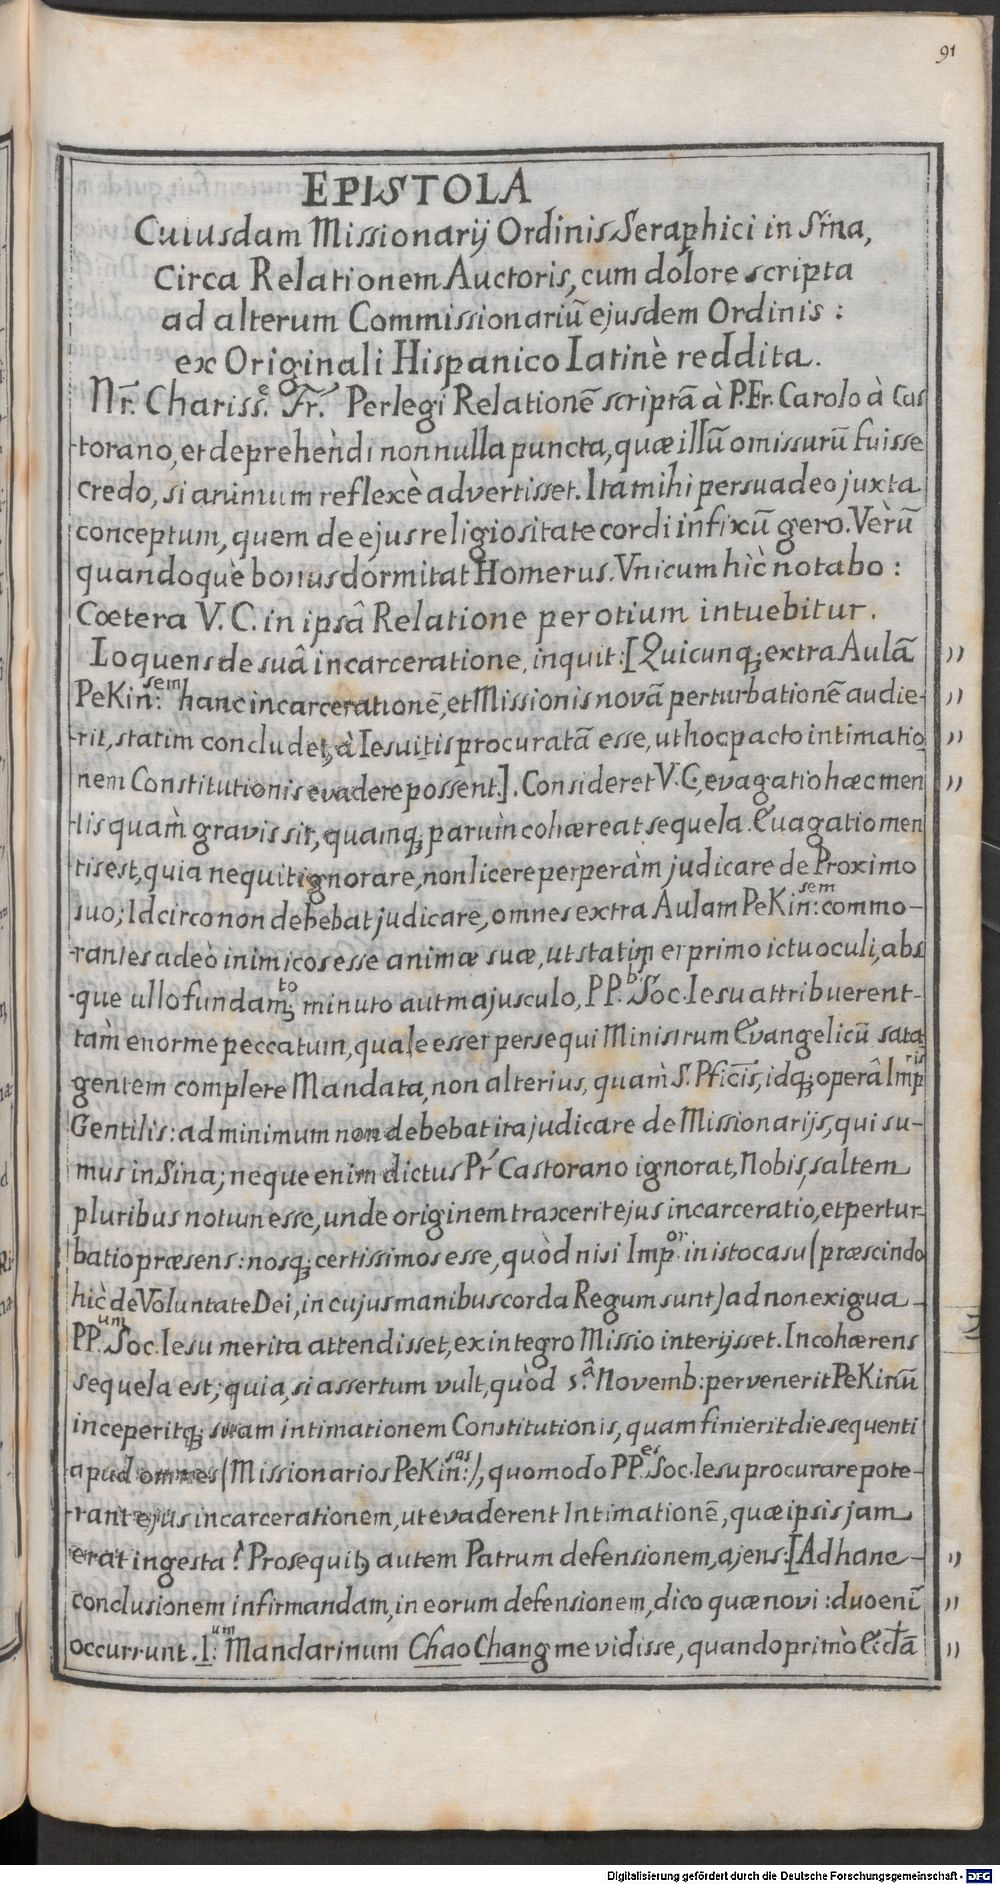 91
EPISTOLA
Cuiusdam Missionarij Ordinis Seraphici in Sina,
Circa Relationem Auctoris, cum dolore scripta
ad alterum Commissionariũ ejusdem Ordinis :
ex Originali Hispanico Latinè reddita.
Nr̃. Chariss.e Fr̃. Perlegi Relationẽ scriptã à P. Fr. Carolo à Cas
-torano, et deprehendi nonnulla puncta, quæ illũ omissurũ fuisse
credo, si animum reflexè advertisset. Ita mihi persuadeo juxta
conceptum, quem de ejus religiositate cordi infixũ gero. Verũ
quandoquè bonus dormitat Homerus. Vnicum hìc notabo :
Cœtera V. C. in ipsâ Relatione per otium intuebitur.
Loquens de suâ incarceratione, inquit : [Quicunq; extra Aulã ))
PeKin:sem hanc incarcerationẽ, et Missionis novã perturbationẽ audie- ))
-rit, statim concludet, à Iesuitis procuratã esse, ut hoc pacto intimatio ))
nem Constitutionis evadere possent.]. Consideret V. C., evagatio hæc men ))
-tis quàm gravis sit, quamq; parum cohæreat sequela. Evagatio men
tis est, quia nequit ignorare, non licere perperàm judicare de Proximo
suo; Idcirco non debebat judicare, omnes extra Aulam PeKin:sem commo-
-rantes adeò inimicos esse animæ suæ, ut statim et primo ictu oculi, abs
-que ullo fundam:to minuto aut majusculo, PP.b. Soc. Iesu attribuerent
tàm enorme peccatum, quale esset persequi Ministrum Evangelicũ sata
gentem complere Mandata, non alterius, quàm S. Pficis̃, idq; operâ Imp.ris
Gentilis : ad minimum non debebat ita judicare de Missionarijs, qui su-
mus in Sina; neque enim dictus Pr̃ Castorano ignorat, Nobis, saltem
pluribus notum esse, unde originem traxerit ejus incarceratio, et pertur-
batio præsens : nosq; certissimos esse, quòd nisi Imp.or in isto casu (præscindo
hìc de Voluntate Dei, in cujus manibus corda Regum sunt) ad non exigua
PP.um Soc. Iesu merita attendisset, ex integro Missio interijsset. Incohærens
sequela est; quia, si assertum vult, quòd 5.â Novemb: pervenerit PeKinũ
inceperitq; suam intimationem Constitutionis, quam finierit die sequenti
apud omnes (Missionarios PeKin:sas), quomodo PP.es Soc. Iesu procurare pote-
-rant ejus incarcerationem, ut evaderent Intimationẽ, quæ ipsis jam
erat ingesta? Prosequitꝭ autem Patrum defensionem, ajens: [Ad hanc- ))
conclusionem infirmandam, in eorum defensionem, dico quæ novi : duo enĩ ))
occurrunt. I:um Mandarinum Chao Chang me vidisse, quando primò ))
Digitalisierung gefördert durch die Deutsche Forschungsgemeinschaft - DFG